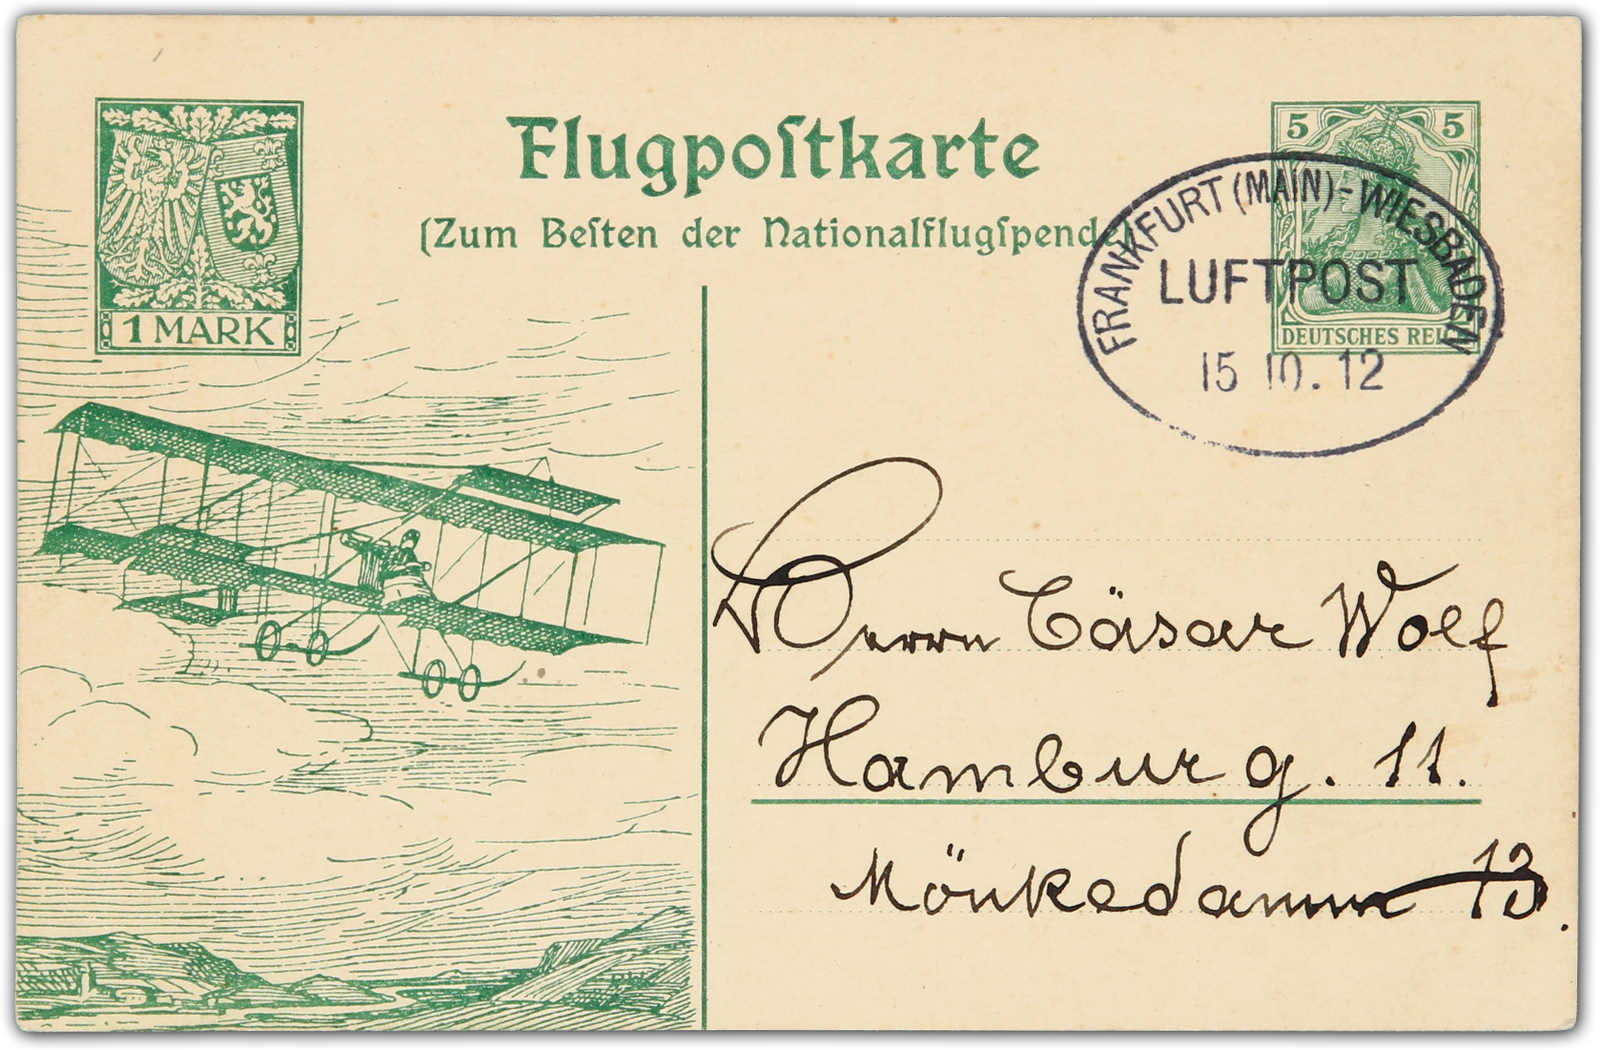 Flugpoſtkarte
(Zum Beſten der Nationalflugſpende)
1 MARK
5 5
DEUTSCHES REI
FRANKFURT (MAIN)-WIESBADEN
LUFTPOST
15 10.12
Herrn Cäsar Wolf
Hamburg. 11.
Mönkedamm 13.